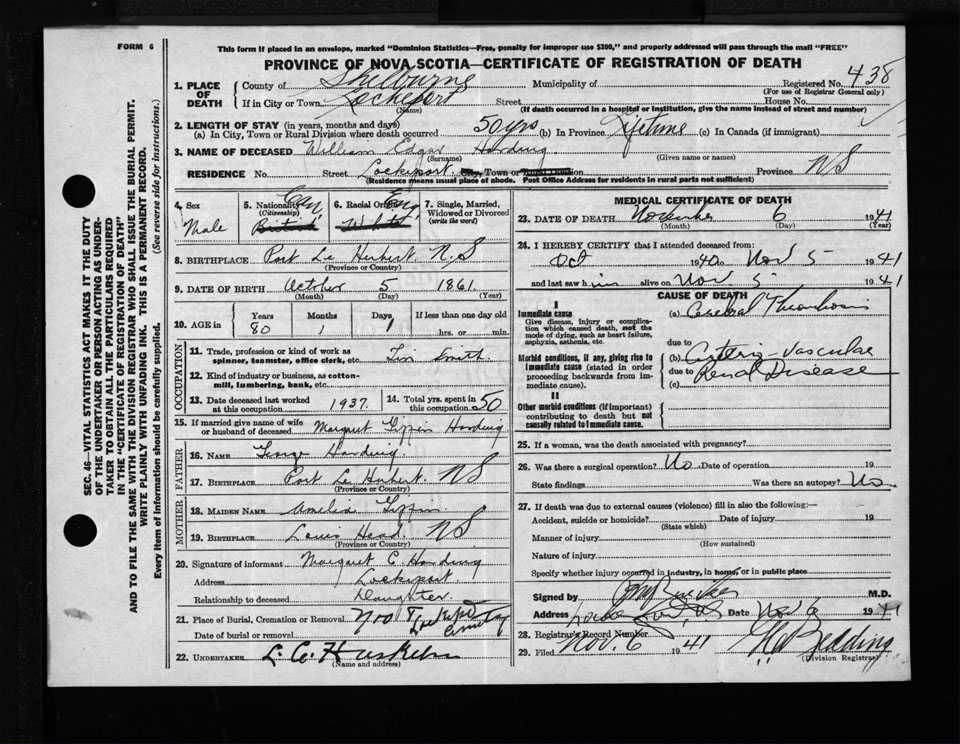 FORM 6
This form if placed in an envelope, marked "Dominion Statistics—Free, penalty for improper use $300," and properly addressed will pass through the mail "FREE"
PROVINCE OF NOVA SCOTIA—CERTIFICATE OF REGISTRATION OF DEATH
1. PLACE OF DEATH
County of Shelburne Municipality of Registered No. 438
(For use of Registrar General only)
If in City or Town Lockeport Street House No.
(Name) (If death occurred in a hospital or institution, give the name instead of street and number)
2. LENGTH OF STAY (in years, months and days)
(a) In City, Town or Rural Division where death occurred 50 yrs (b) In Province Lifetime (c) In Canada (if immigrant)
3. NAME OF DECEASED William Edgar Harding
(Surname) (Given name or names)
RESIDENCE No. Street Lockeport Town or Province NS
(Residence means usual place of abode. Post Office Address for residents in rural parts not sufficient)
4. Sex Male
5. Nationality (Citizenship) Can British
6. Racial Origin Eng White
7. Single, Married, Widowed or Divorced (write the word)
8. BIRTHPLACE Port Le Herbert N.S
(Province or Country)
9. DATE OF BIRTH October 5 1861
(Month) (Day) (Year)
10. AGE in Years 80 Months 1 Days 1 If less than one day old hrs. or min.
OCCUPATION
11. Trade, profession or kind of work as spinner, teamster, office clerk, etc. Tin Smith
12. Kind of industry or business, as cotton-mill, lumbering, bank, etc.
13. Date deceased last worked at this occupation 1937. 14. Total yrs. spent in this occupation 50
15. If married give name of wife or husband of deceased Margaret Harding
FATHER
16. NAME George Harding
17. BIRTHPLACE Port Le Herbert. NS
(Province or Country)
MOTHER
18. MAIDEN NAME Amelia
19. BIRTHPLACE Louis Head. NS
(Province or Country)
20. Signature of informant Margaret Harding
Address Lockeport.
Relationship to deceased Daughter.
21. Place of Burial, Cremation or Removal Nov 7 Lockeport Cemetery
Date of burial or removal
22. UNDERTAKER
(Name and address)
MEDICAL CERTIFICATE OF DEATH
23. DATE OF DEATH November 6 1941
(Month) (Day) (Year)
24. I HEREBY CERTIFY that I attended deceased from:
Oct 1940 to Nov 5 1941
and last saw him alive on Nov 5 1941
CAUSE OF DEATH
I
Immediate cause
Give disease, injury or complication which caused death, not the mode of dying, such as heart failure, asphyxia, asthenia, etc.
(a) Cerebral Thrombosis
due to
Morbid conditions, if any, giving rise to immediate cause (stated in order proceeding backwards from immediate cause).
(b) Arterio-Vascular
due to Renal Disease
(c)
II
Other morbid conditions (if important) contributing to death but not causally related to immediate cause.
25. If a woman, was the death associated with pregnancy?
26. Was there a surgical operation? No Date of operation 19
State findings Was there an autopsy? No
27. If death was due to external causes (violence) fill in also the following:—
Accident, suicide or homicide? Date of injury 19
(State which)
Manner of injury
(How sustained)
Nature of injury
Specify whether injury occurred in industry, in home, or in public place
Signed by M.D.
Address Date Nov 6 1941
28. Registrar's Record Number
29. Filed Nov. 6 1941
(Division Registrar)
SEC. 46—VITAL STATISTICS ACT MAKES IT THE DUTY
OF THE UNDERTAKER OR PERSON ACTING AS UNDERTAKER TO OBTAIN ALL THE PARTICULARS REQUIRED
IN THE "CERTIFICATE OF REGISTRATION OF DEATH"
AND TO FILE THE SAME WITH THE DIVISION REGISTRAR WHO SHALL ISSUE THE BURIAL PERMIT.
WRITE PLAINLY WITH UNFADING INK. THIS IS A PERMANENT RECORD.
Every item of information should be carefully supplied. (See reverse side for instructions.)